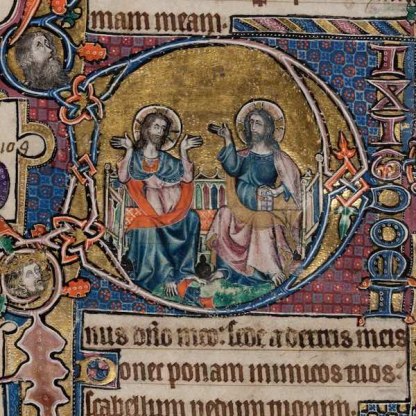 mam meam.
109
D
IXIT DOMI
nus dño meo: sede a dextris meis
Donec ponam inimicos tuos:
scabellum pedum tuorum